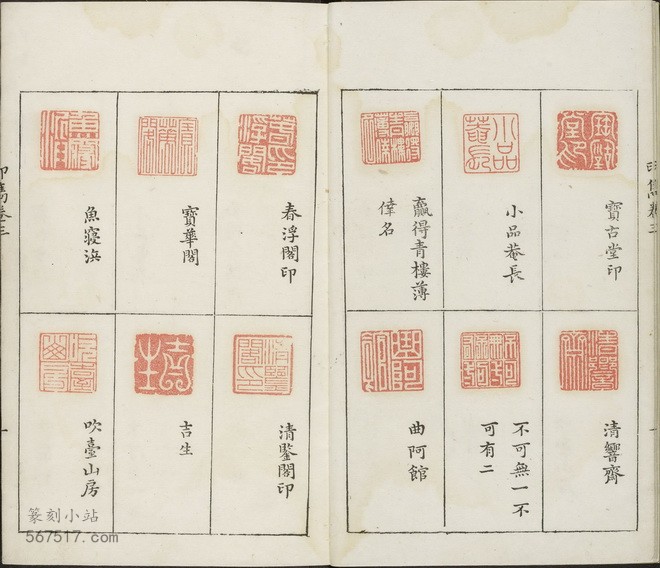 印雋卷三
寶古堂印
小品菴長
贏得青樓薄
倖名
清響齋
不可無一不
可有二
曲阿館
春浮閣印
寶華閣
魚寢浜
清鑒閣印
吉生
吹臺山房
印雋卷三
篆刻小站
567517.com